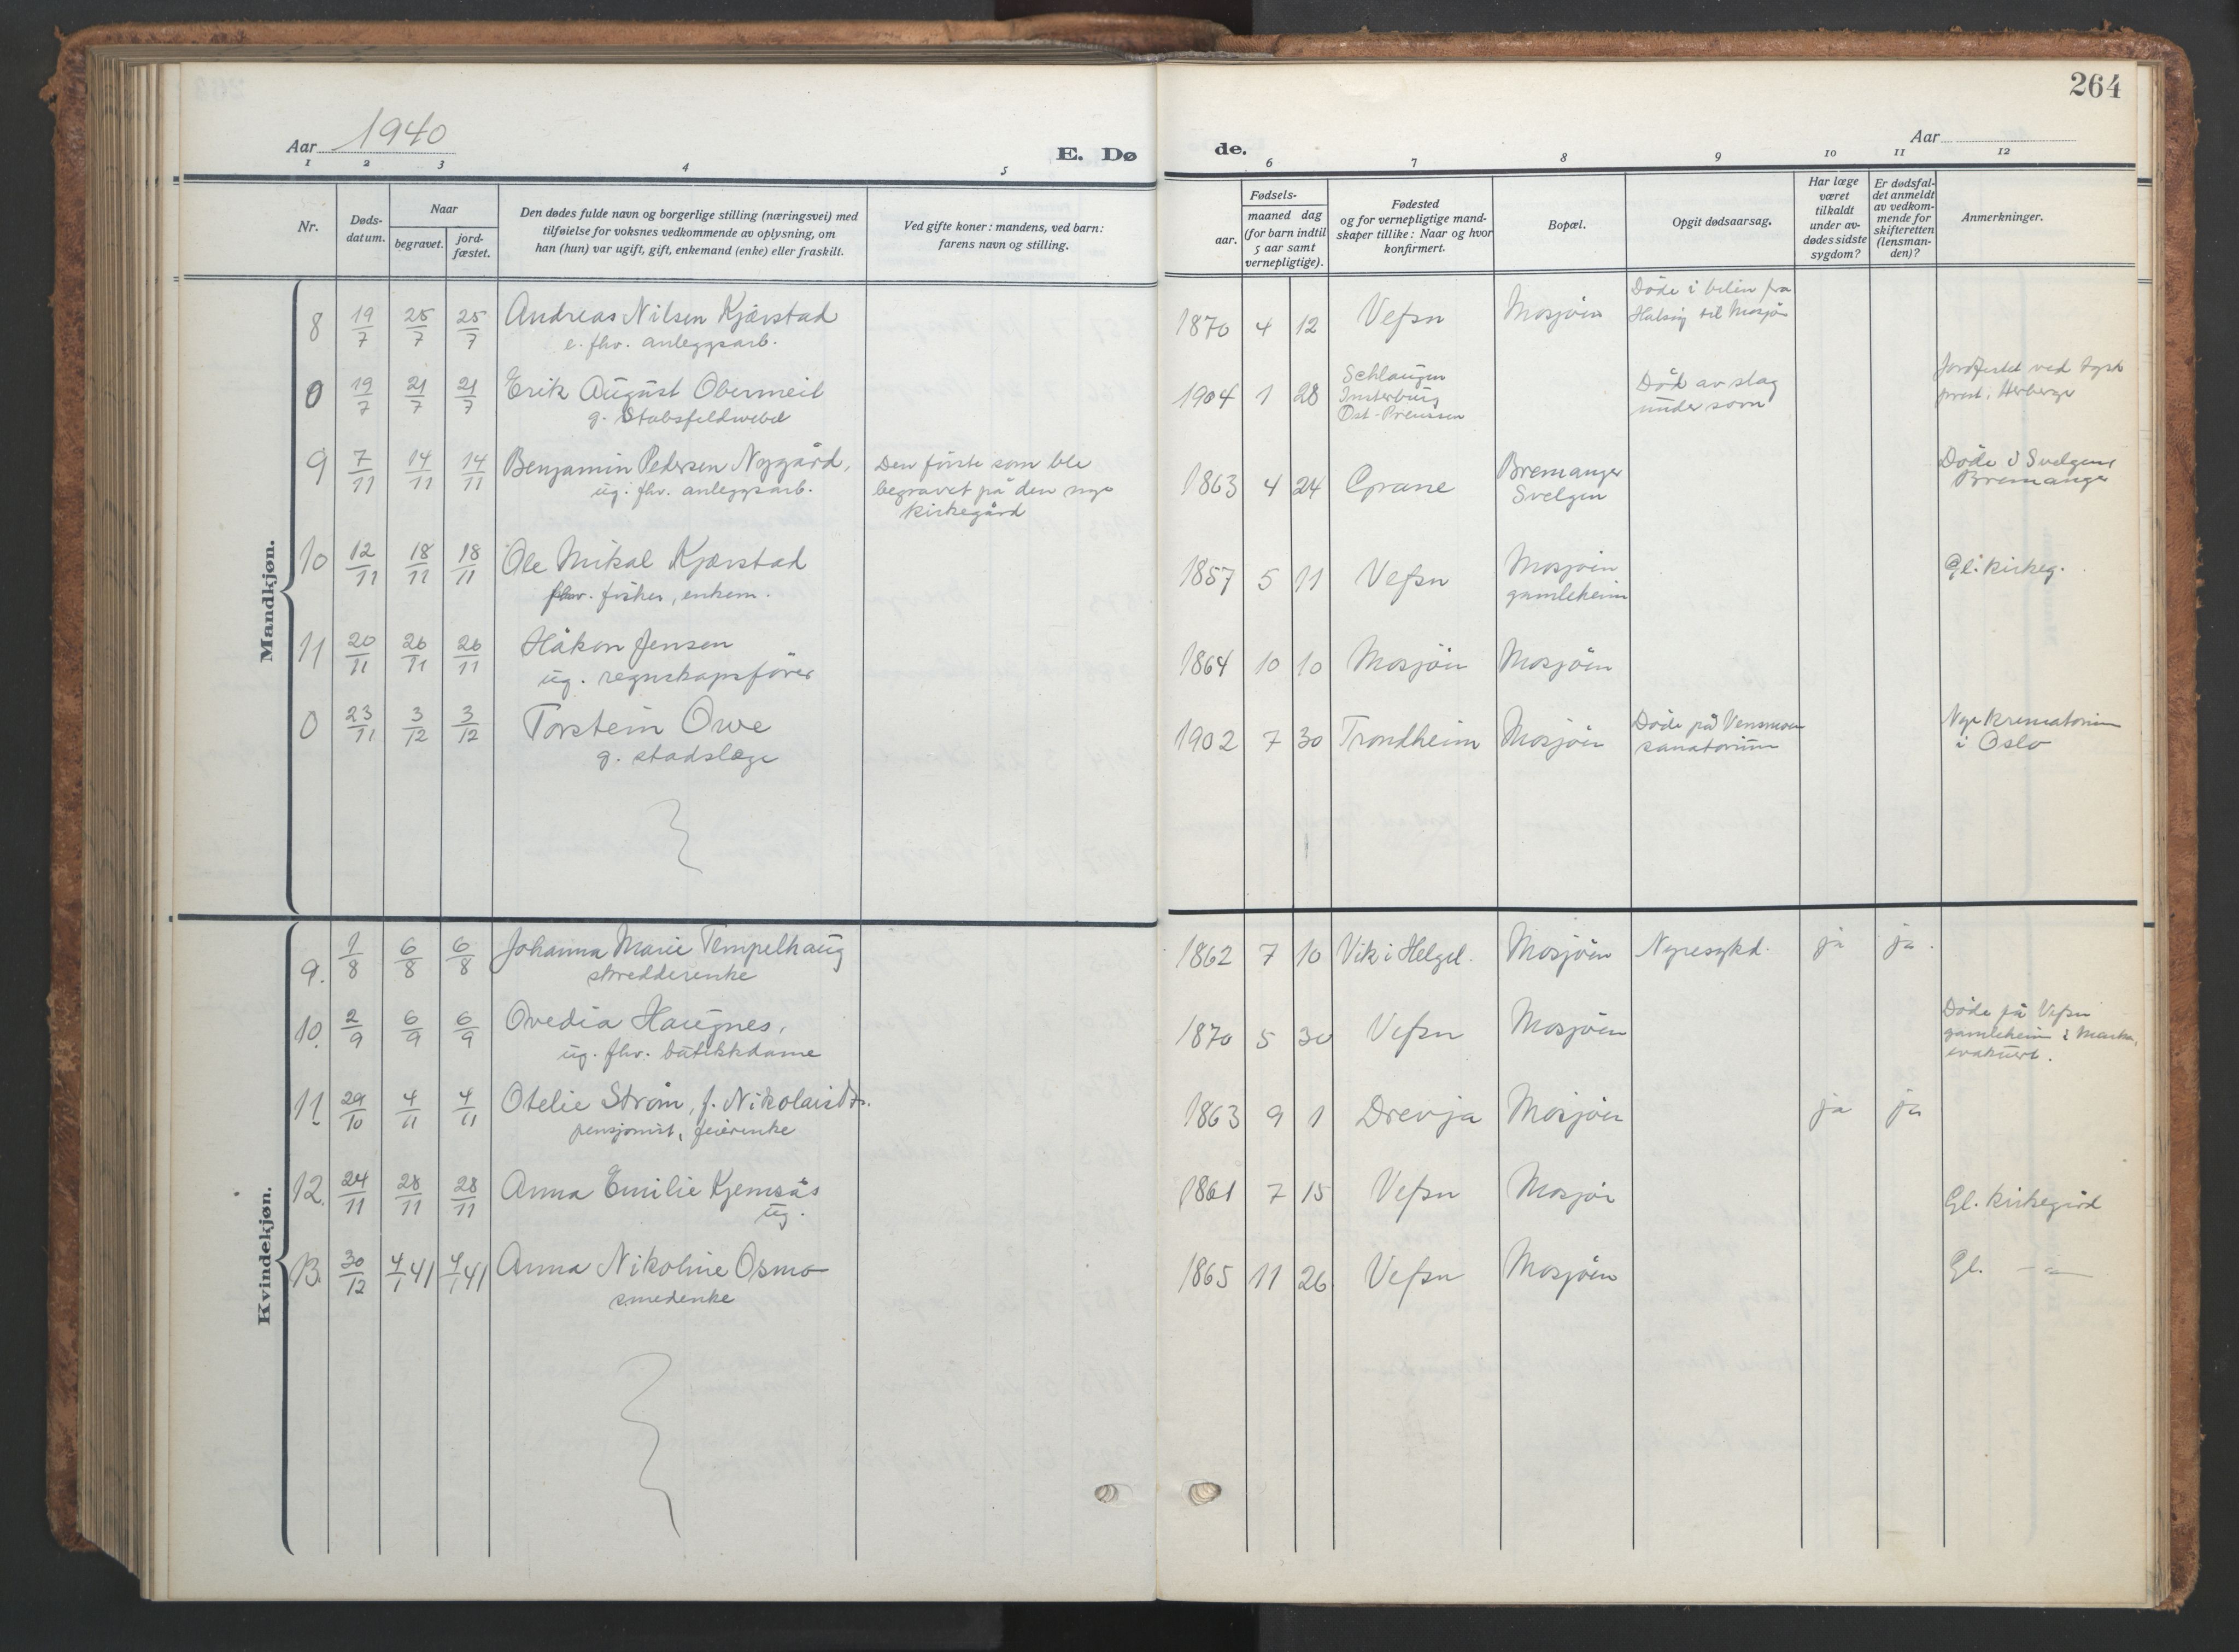 264
Aar 1940
E. Dø
de.
Aar
1 2 3 4 5
6 7 8 9 10 11 12
Nr.
Døds-
datum.
Naar
begravet.
jord-
fæstet.
Den dødes fulde navn og borgerlige stilling (næringsvei) med
tilføielse for voksnes vedkommende av oplysning, om
han (hun) var ugift, gift, enkemand (enke) eller fraskilt.
Ved gifte koner: mandens, ved barn:
farens navn og stilling.
Fødsels-
aar.
maaned dag
(for barn indtil
5 aar samt
vernepligtige).
Fødested
og for vernepligtige mand-
skaper tillike: Naar og hvor
konfirmert.
Bopæl.
Opgit dødsaarsag.
Har læge
været
tilkaldt
under av-
dødes sidste
sygdom?
Er dødsfal-
det anmeldt
av vedkom-
mende for
skifteretten
(lensman-
den)?
Anmerkninger.
Mandkjøn.
8 19/7 25/7 25/7 Andreas Nilsen Kjærstad
e. fhv. anleggsarb.
1870 4 12 Vefsn Mosjöen
Döde i bilen fra
til Mosjö
0 19/7 21/7 21/7 Erik August Obermeit
g. Stabsfeldwebel
1904 1 28
Schlaugen
Insterburg
Ost-Preussen
Död av slag
under sovn
Jordfestet ved tysk
prest, Herberge
9 7/11 14/11 14/11 Benjamin Pedersen Nygård,
ug. fhv. anleggsarb.
Den förste som ble
begravet på den nye
kirkegård
1863 4 24 Grane
Bremanger
Svelgen
Döde i Svelgen
Bremanger
10 12/11 18/11 18/11 Ole Mikal Kjærstad
fhv. fisker, enkem.
1857 5 11 Vefsn
Mosjöen
gamleheim
Gl. kirkeg.
11 20/11 26/11 26/11 Håkon Jensen
ug. regnskapsförer
1864 10 10 Mosjöen Mosjöen
0 23/11 3/12 3/12 Torstein Owe
g. stadslæge
1902 7 30 Trondheim Mosjöen
Döde på Vensmoen
sanatorium
Nye krematorium
i Oslo
Kvindekjøn.
9. 1/8 6/8 6/8 Johanna Marie Tempelhaug
skredderenke
1862 7 10 Vik i Helgel. Mosjöen Nyresykd. ja ja.
10. 2/9 6/9 6/9 Ovedia Haugnes,
ug. fhv. butikkdame
1870 5 30 Vefsn Mosjöen
Döde på Vefsn
gamleheim i
evakuert.
11. 29/10 4/11 4/11 Otelie Ström, f. Nikolaisdtr.
pensjonist, feierenke
1863 9 1 Drevja Mosjöen ja ja
12. 24/11 28/11 28/11 Anna Emilie Kjemsås
ug.
1861 7 15 Vefsn Mosjöen
Gl. kirkegård
13. 30/12 4/1 41 4/1 41 Anna Nikoline Osmo
smedenke
1865 11 26 Vefsn Mosjöen
Gl. -"-